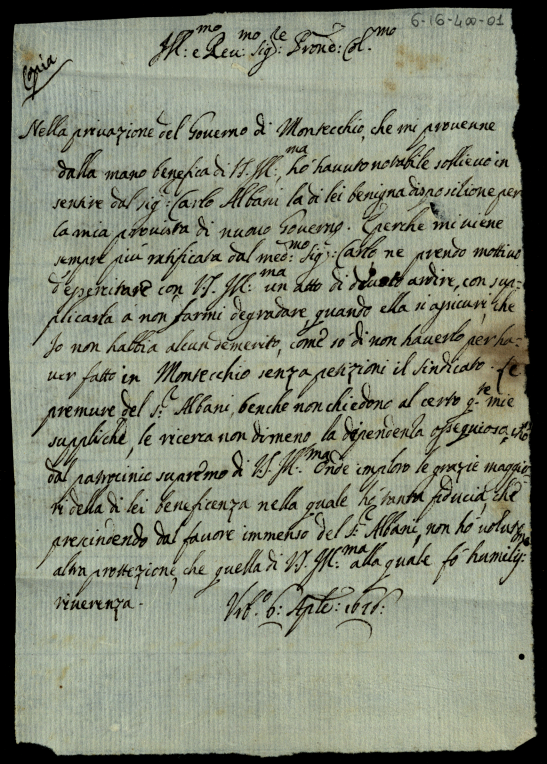 6-16-400-01
Ill.mo e Reu.mo Sig.re Prone: Col.mo
Copia
Nella priuazione del Gouerno di Montecchio, che mi prouenne
dalla mano benefica di V.S. Ill.ma, hò hauuto notabile sollieuo in
sentire dal Sig.r Carlo Albani la di lei benigna disposizione per
la mia prouista di nuouo Gouerno. E perche mi uiene
sempre più ratificata dal med.mo Sig.r Carlo ne prendo motiuo
d'esercitare con V.S. Ill.ma un atto di deuoto ardire, con sup-
plicarla a non farmi degradare quando ella si assicuri, che
Io non habbia alcun demerito, come so di non hauerlo per ha-
uer fatto in Montecchio senza petizioni il sindicato. Le
premure del S.r Albani, benche non chiedono al certo q.te mie
suppliche, le ricerca non dimeno la dipendenza ossequiosa, che hò
dal patrocinio supremo di V.S. Ill.ma Onde imploro le grazie maggio-
ri della di lei beneficenza nella quale hò tanta fiducia, che
prescindendo dal fauore immenso del S.r Albani, non hò uoluto
altra protezione, che quella di V.S. Ill.ma alla quale fò humiliss.ma
riuerenza.
Urb.o 6: Aple: 1676: